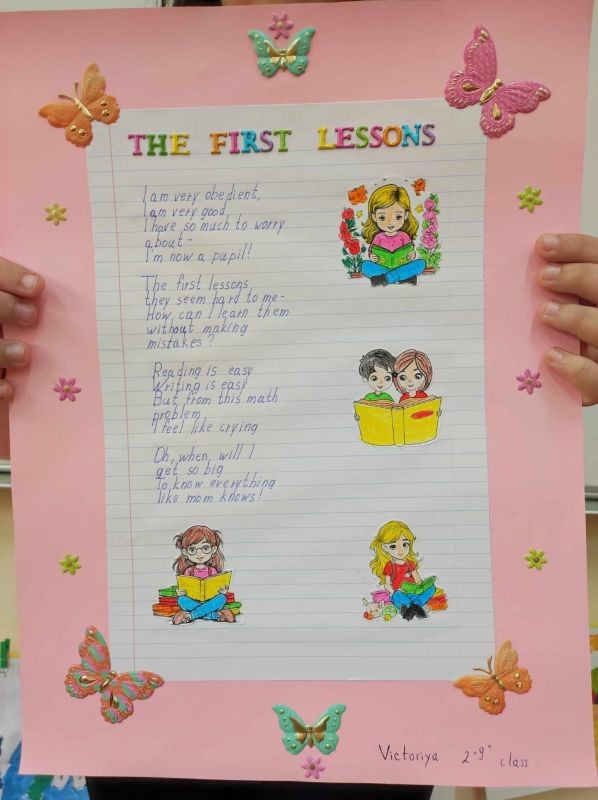 THE FIRST LESSONS
I am very obedient,
I am very good,
I have so much to worry
about -
I'm now a pupil!
The first lessons
they seem hard to me -
How can I learn them
without making
mistakes?
Reading is easy
Writing is easy
But from this math
problem
I feel like crying
Oh, when, will I
get so big
To know everything
like mom knows!
Victoriya 2"g" class